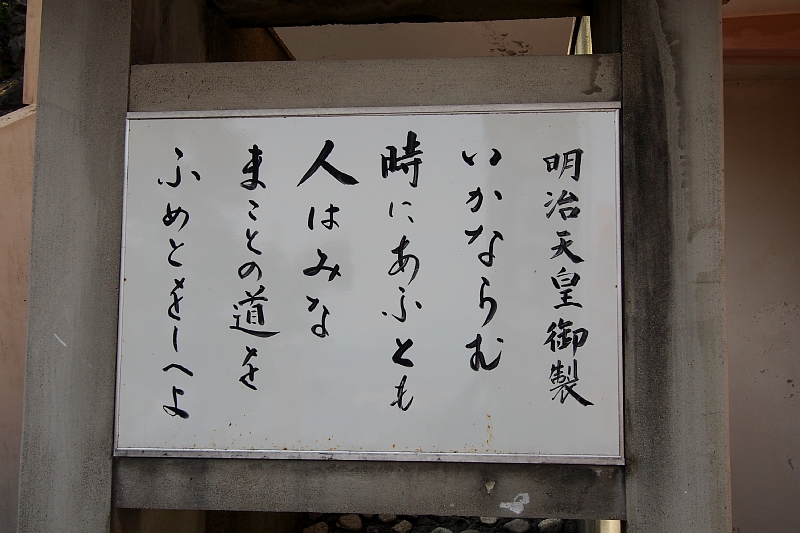 明治天皇御製
いかならむ
時にあふとも
人はみな
まことの道を
ふめとをしへよ